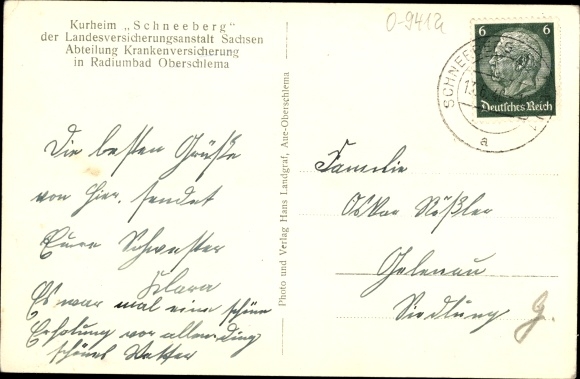 Kurheim „Schneeberg"
der Landesversicherungsanstalt Sachsen
Abteilung Krankenversicherung
in Radiumbad Oberschlema
O-9412
6 6
Deutsches Reich
SCHNEEBERG
a
Die besten Grüße
von hier, sendet
Eure Schwester
Klara
Es war mal eine schöne
Erholung vor allen Ding
schönes Wetter
Photo und Verlag Hans Landgraf, Aue-Oberschlema
Familie
Oskar Rößler
Gelenau
Siedlung G.